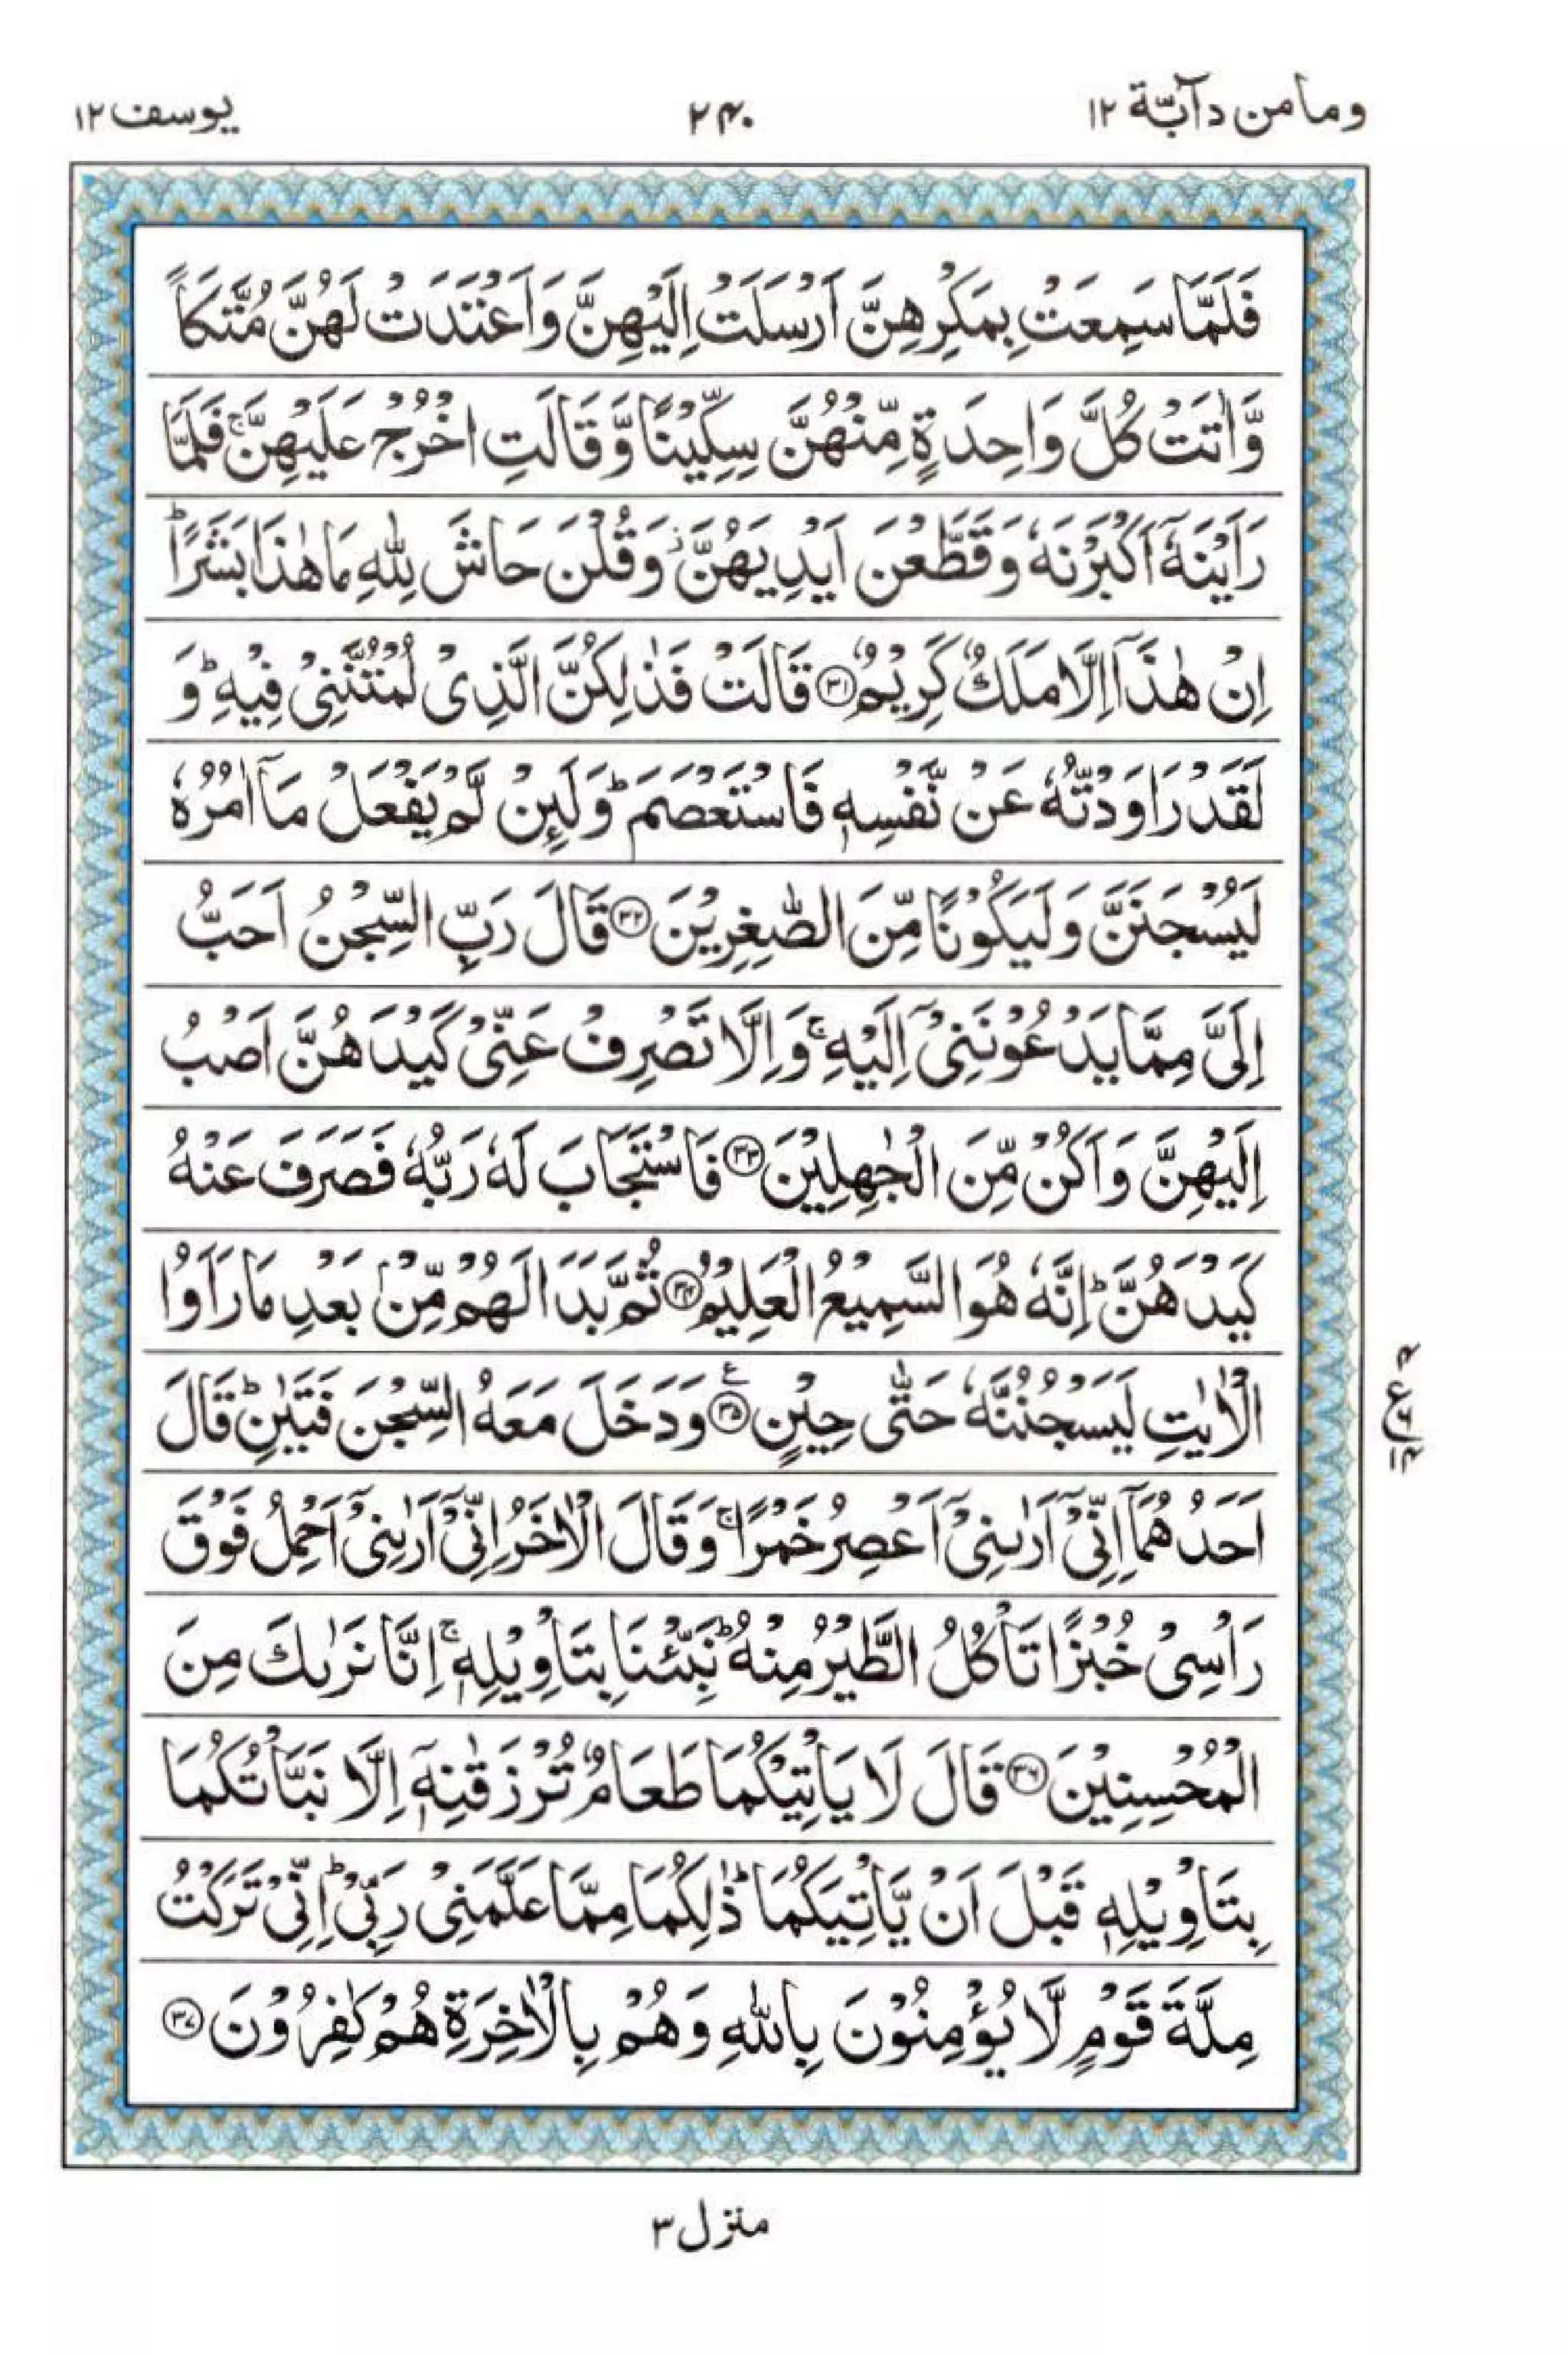 ومامن دآبّة ١٢
٢٤٠
يوسف ١٢
فَلَمَّا سَمِعَتْ بِمَكْرِهِنَّ اَرْسَلَتْ اِلَيْهِنَّ وَاَعْتَدَتْ لَهُنَّ مُتَّكَاً
وَّاٰتَتْ كُلَّ وَاحِدَةٍ مِّنْهُنَّ سِكِّيْنًا وَّقَالَتِ اخْرُجْ عَلَيْهِنَّ ۚ فَلَمَّا
رَاَيْنَهٗۤ اَكْبَرْنَهٗ وَقَطَّعْنَ اَيْدِيَهُنَّ ز وَقُلْنَ حَاشَ لِلّٰهِ مَا هٰذَا بَشَرًا ؕ
اِنْ هٰذَاۤ اِلَّا مَلَكٌ كَرِيْمٌ ۝٣١ قَالَتْ فَذٰلِكُنَّ الَّذِیْ لُمْتُنَّنِیْ فِيْهِ ؕ وَ
لَقَدْ رَاوَدْتُّهٗ عَنْ نَّفْسِهٖ فَاسْتَعْصَمَ ؕ وَلَىِٕنْ لَّمْ يَفْعَلْ مَاۤ اٰمُرُهٗ
لَيُسْجَنَنَّ وَلَيَكُوْنًا مِّنَ الصّٰغِرِيْنَ ۝٣٢ قَالَ رَبِّ السِّجْنُ اَحَبُّ
اِلَیَّ مِمَّا يَدْعُوْنَنِیْۤ اِلَيْهِ ۚ وَاِلَّا تَصْرِفْ عَنِّیْ كَيْدَهُنَّ اَصْبُ
اِلَيْهِنَّ وَاَكُنْ مِّنَ الْجٰهِلِيْنَ ۝٣٣ فَاسْتَجَابَ لَهٗ رَبُّهٗ فَصَرَفَ عَنْهُ
كَيْدَهُنَّ ؕ اِنَّهٗ هُوَ السَّمِيْعُ الْعَلِيْمُ ۝٣٤ ثُمَّ بَدَا لَهُمْ مِّنْۢ بَعْدِ مَا رَاَوُا
الْاٰيٰتِ لَيَسْجُنُنَّهٗ حَتّٰى حِيْنٍ ۝٣٥ ع وَدَخَلَ مَعَهُ السِّجْنَ فَتَيٰنِ ؕ قَالَ
اَحَدُهُمَاۤ اِنِّیْۤ اَرٰىنِیْۤ اَعْصِرُ خَمْرًا ۚ وَقَالَ الْاٰخَرُ اِنِّیْۤ اَرٰىنِیْۤ اَحْمِلُ فَوْقَ
رَاْسِیْ خُبْزًا تَاْكُلُ الطَّيْرُ مِنْهُ ؕ نَبِّئْنَا بِتَاْوِيْلِهٖ ۚ اِنَّا نَرٰىكَ مِنَ
الْمُحْسِنِيْنَ ۝٣٦ قَالَ لَا يَاْتِيْكُمَا طَعَامٌ تُرْزَقٰنِهٖۤ اِلَّا نَبَّاْتُكُمَا
بِتَاْوِيْلِهٖ قَبْلَ اَنْ يَّاْتِيَكُمَا ؕ ذٰلِكُمَا مِمَّا عَلَّمَنِیْ رَبِّیْ ؕ اِنِّیْ تَرَكْتُ
مِلَّةَ قَوْمٍ لَّا يُؤْمِنُوْنَ بِاللّٰهِ وَهُمْ بِالْاٰخِرَةِ هُمْ كٰفِرُوْنَ ۝٣٧
منزل ٣